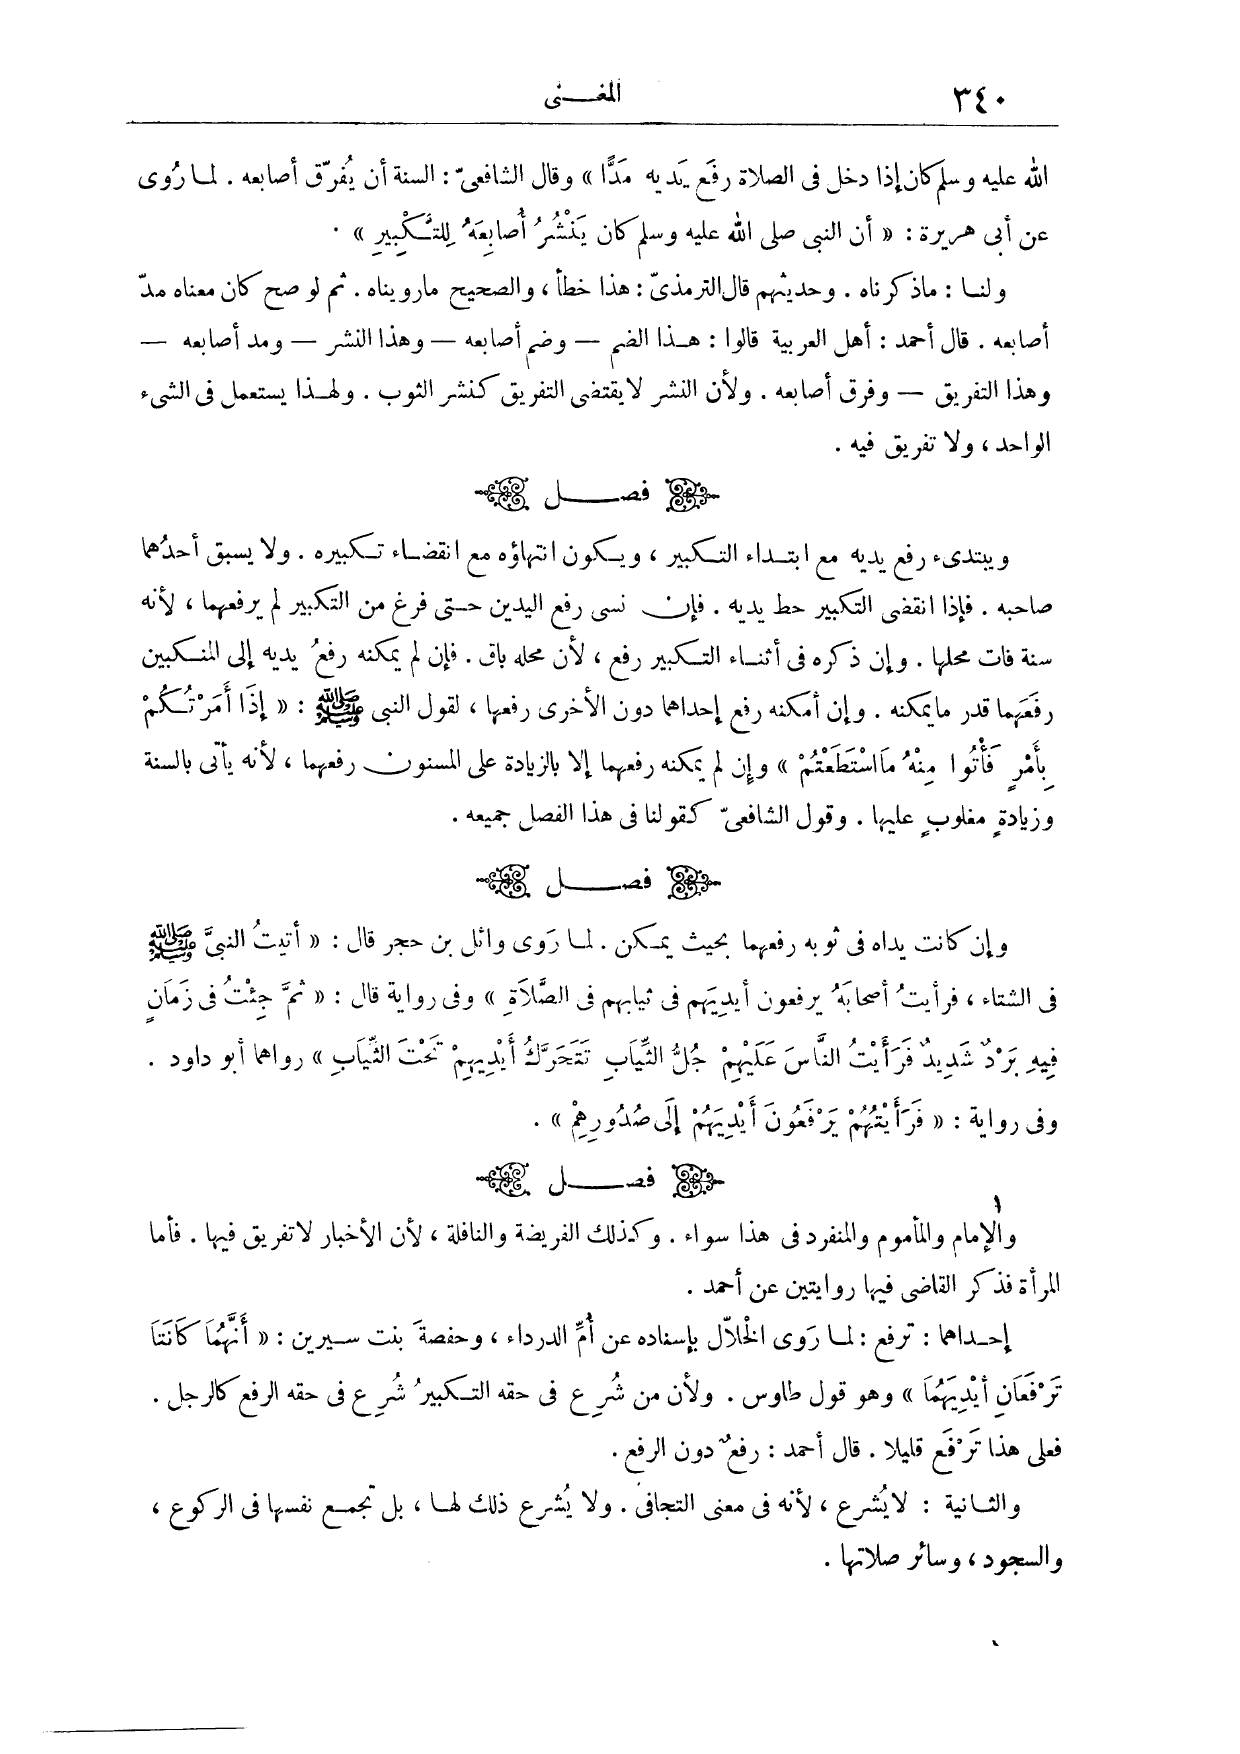 ٣٤٠
المغنى
الله عليه وسلم كان إذا دخل فى الصلاة رفَع يَديه مَدًّا » وقال الشافعىّ : السنة أن يُفرّق أصابعه . لما رُوى
عن أبى هريرة : « أن النبى صلى الله عليه وسلم كان يَنْشُرُ أَصابِعَهُ لِلتَّكْبِيرِ » .
ولنا : ماذكرناه . وحديثهم قال الترمذىّ : هذا خطأ ، والصحيح مارويناه . ثم لو صح كان معناه مدّ
أصابعه . قال أحمد : أهل العربية قالوا : هذا الضم — وضم أصابعه — وهذا النشر — ومد أصابعه —
وهذا التفريق — وفرق أصابعه . ولأن النشر لا يقتضى التفريق كنشر الثوب . ولهذا يستعمل فى الشىء
الواحد ، ولا تفريق فيه .
فصل
ويبتدىء رفع يديه مع ابتداء التكبير ، ويكون انتهاؤه مع انقضاء تكبيره . ولا يسبق أحدُهما
صاحبه . فإذا انقضى التكبير حط يديه . فإن نسى رفع اليدين حتى فرغ من التكبير لم يرفعهما ، لأنه
سنة فات محلها . وإن ذكره فى أثناء التكبير رفع ، لأن محله باق . فإن لم يمكنه رفعُ يديه إلى المنكبين
رفَعَهما قدر مايمكنه . وإن أمكنه رفع إحداهما دون الأخرى رفعها ، لقول النبى ﷺ : « إِذَا أَمَرْتُكُمْ
بِأَمْرٍ فَأْتُوا مِنْهُ مَااسْتَطَعْتُمْ » وإن لم يمكنه رفعهما إلا بالزيادة على المسنون رفعهما ، لأنه يأتى بالسنة
وزيادةٍ مغلوبٍ عليها . وقول الشافعىّ كقولنا فى هذا الفصل جميعه .
فصل
وإن كانت يداه فى ثوبه رفعهما بحيث يمكن . لما رَوى وائل بن حجر قال : « أتيتُ النبىَّ ﷺ
فى الشتاء ، فرأيتُ أصحابَهُ يرفعون أيدِيَهم فى ثيابهم فى الصَّلَاةِ » وفى رواية قال : « ثمَّ جِئْتُ فى زَمَانٍ
فِيهِ بَرْدٌ شَدِيدٌ فَرَأَيْتُ النَّاسَ عَلَيْهِمْ جُلُّ الثِّيَابِ تَتَحَرَّكُ أَيْدِيهِمْ تَحْتَ الثِّيَابِ » رواهما أبو داود .
وفى رواية : « فَرَأَيْتُهُمْ يَرْفَعُونَ أَيْدِيَهُمْ إِلَى صُدُورِهِمْ » .
فصل
والإمام والمأموم والمنفرد فى هذا سواء . وكذلك الفريضة والنافلة ، لأن الأخبار لاتفريق فيها . فأما
المرأة فذكر القاضى فيها روايتين عن أحمد .
إحداهما : ترفع : لما رَوى الخلاّل بإسناده عن أُمِّ الدرداء ، وحفصةَ بنت سيرين : « أَنَّهُمَا كَانَتَا
تَرْفَعَانِ أَيْدِيَهُمَا » وهو قول طاوس . ولأن من شُرِع فى حقه التكبيرُ شُرِع فى حقه الرفع كالرجل .
فعلى هذا تَرْفَع قليلا . قال أحمد : رفعٌ دون الرفع .
والثانية : لايُشرع ، لأنه فى معنى التجافى . ولا يُشرع ذلك لها ، بل تجمع نفسها فى الركوع ،
والسجود ، وسائر صلاتها .